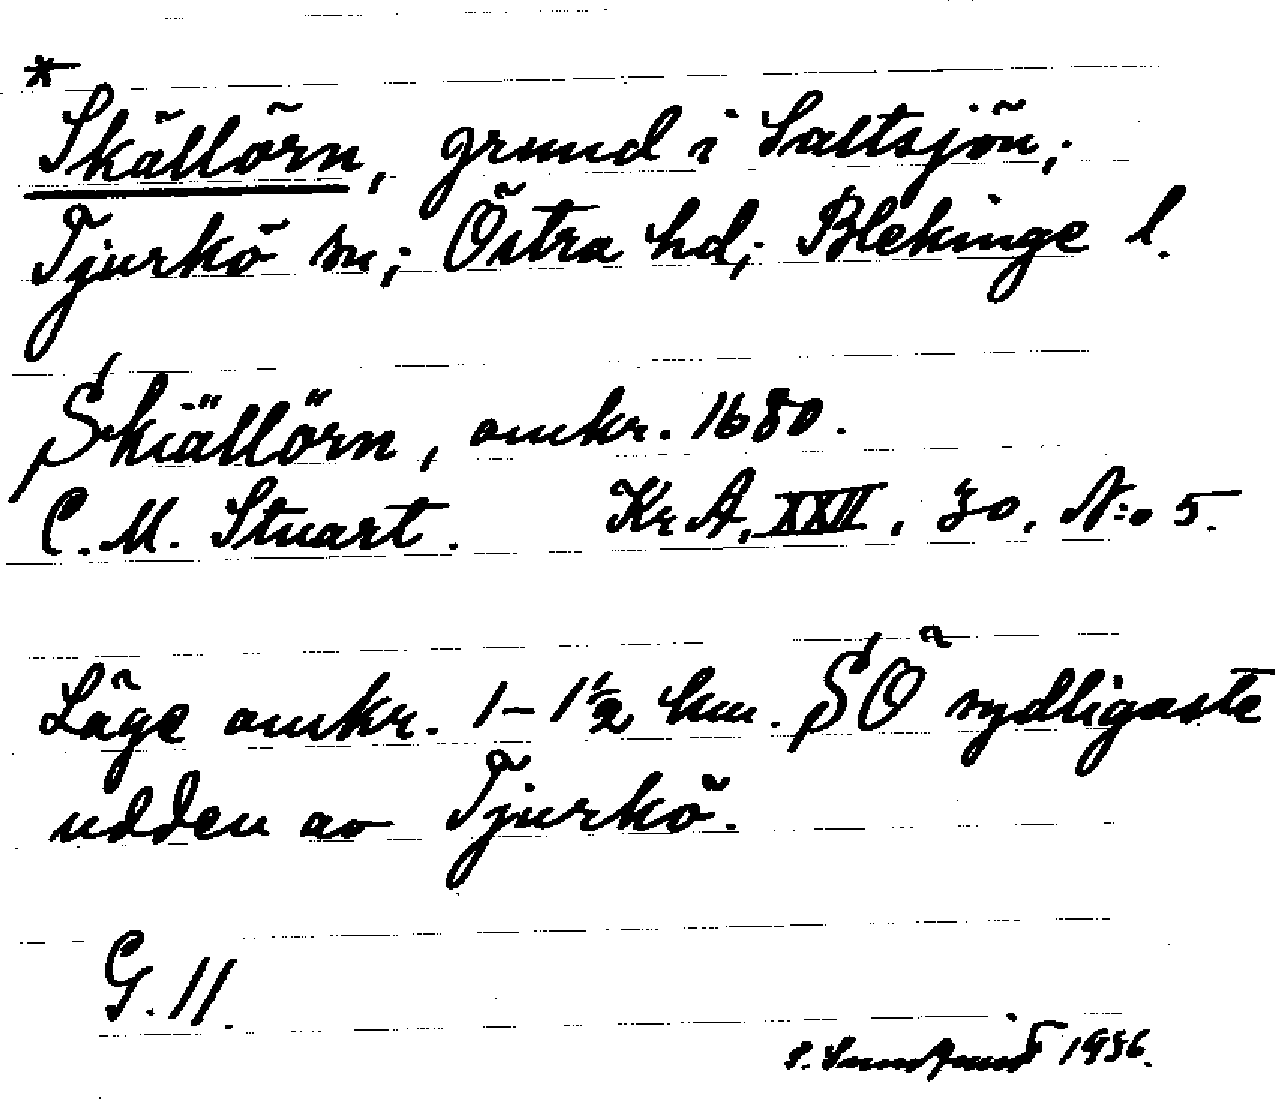 * Skällörn, grund i Saltsjön;
Tjurkö sn; Östra hd; Blekinge l.
Skiällörn, omkr. 1680.
C. M. Stuart. Kr A, XXII, 30, N:o 5.
Läge omkr. 1–1½ km. SÖ sydligaste
udden av Tjurkö.
G. 11.
S. 1936.